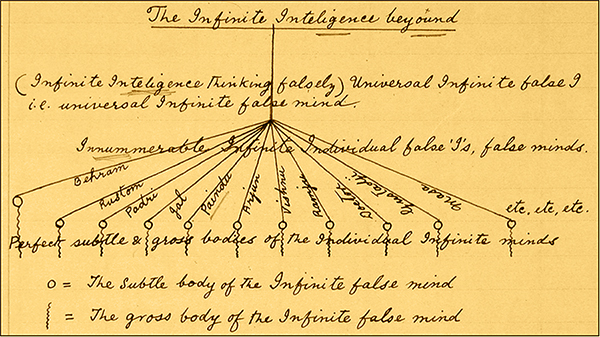 The Infinite Inteligence beyound
(Infinite Inteligence thinking falsely) Universal Infinite false I
i.e. universal Infinite false mind.
Innummerable Infinite Individual false 'I's, false minds.
Behram
Rustom
Padri
Jal
Pandu
Arjun
Vishnu
Ramju
Gustadji
Masa
etc, etc, etc.
Perfect subtle & gross bodies of the Individual Infinite minds
o = The Subtle body of the Infinite false mind
= The gross body of the Infinite false mind